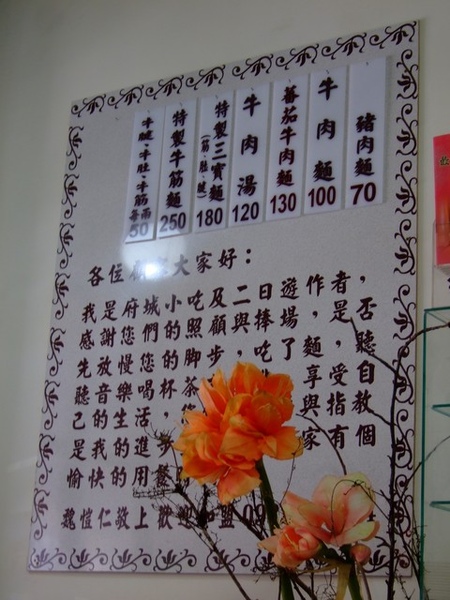 豬肉麵 70
牛肉麵 100
蕃茄牛肉麵 130
牛肉湯 120
特製三寶麵 (筋、肚、腱) 180
特製牛筋麵 250
牛腱、牛肚、牛筋 每兩 50
各位 大家好：
我是府城小吃及二日遊作者，
感謝您們的照顧與捧場，是否
先放慢您的脚步，吃了麵，聽
聽音樂喝杯茶 享受自
己的生活， 與指教
是我的進步 家有個
愉快的用餐
魏愷仁敬上 歡迎加盟 09